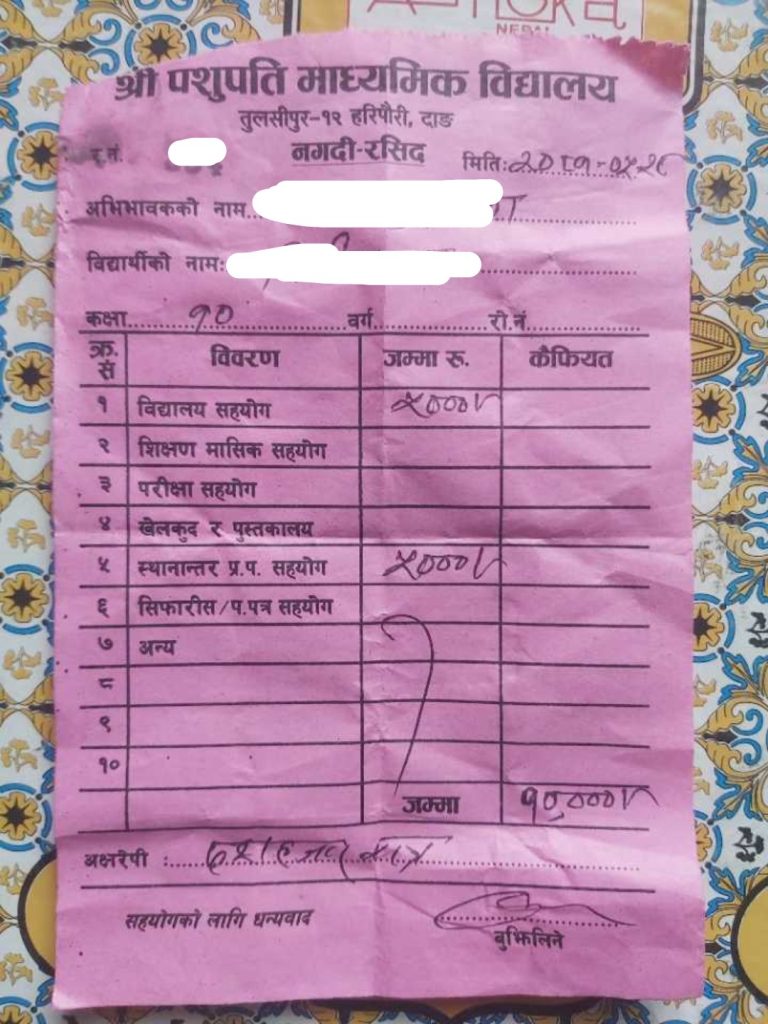 NEPAL
श्री पशुपति माध्यमिक विद्यालय
तुलसीपुर-१२ हरिपौरी, दाङ
नगदी-रसिद
र.नं. मिति:
अभिभावकको नाम
विद्यार्थीको नाम:
कक्षा १० वर्ग रो.नं.
क्र. सं विवरण जम्मा रु. कैफियत
१ विद्यालय सहयोग ५०००/
२ शिक्षण मासिक सहयोग
३ परीक्षा सहयोग
४ खेलकुद र पुस्तकालय
५ स्थानान्तर प्र.प. सहयोग ५०००/
६ सिफारीस/प.पत्र सहयोग
७ अन्य
८
९
१०
जम्मा १०,०००/
अक्षरेपी :
सहयोगको लागि धन्यवाद
बुझिलिने